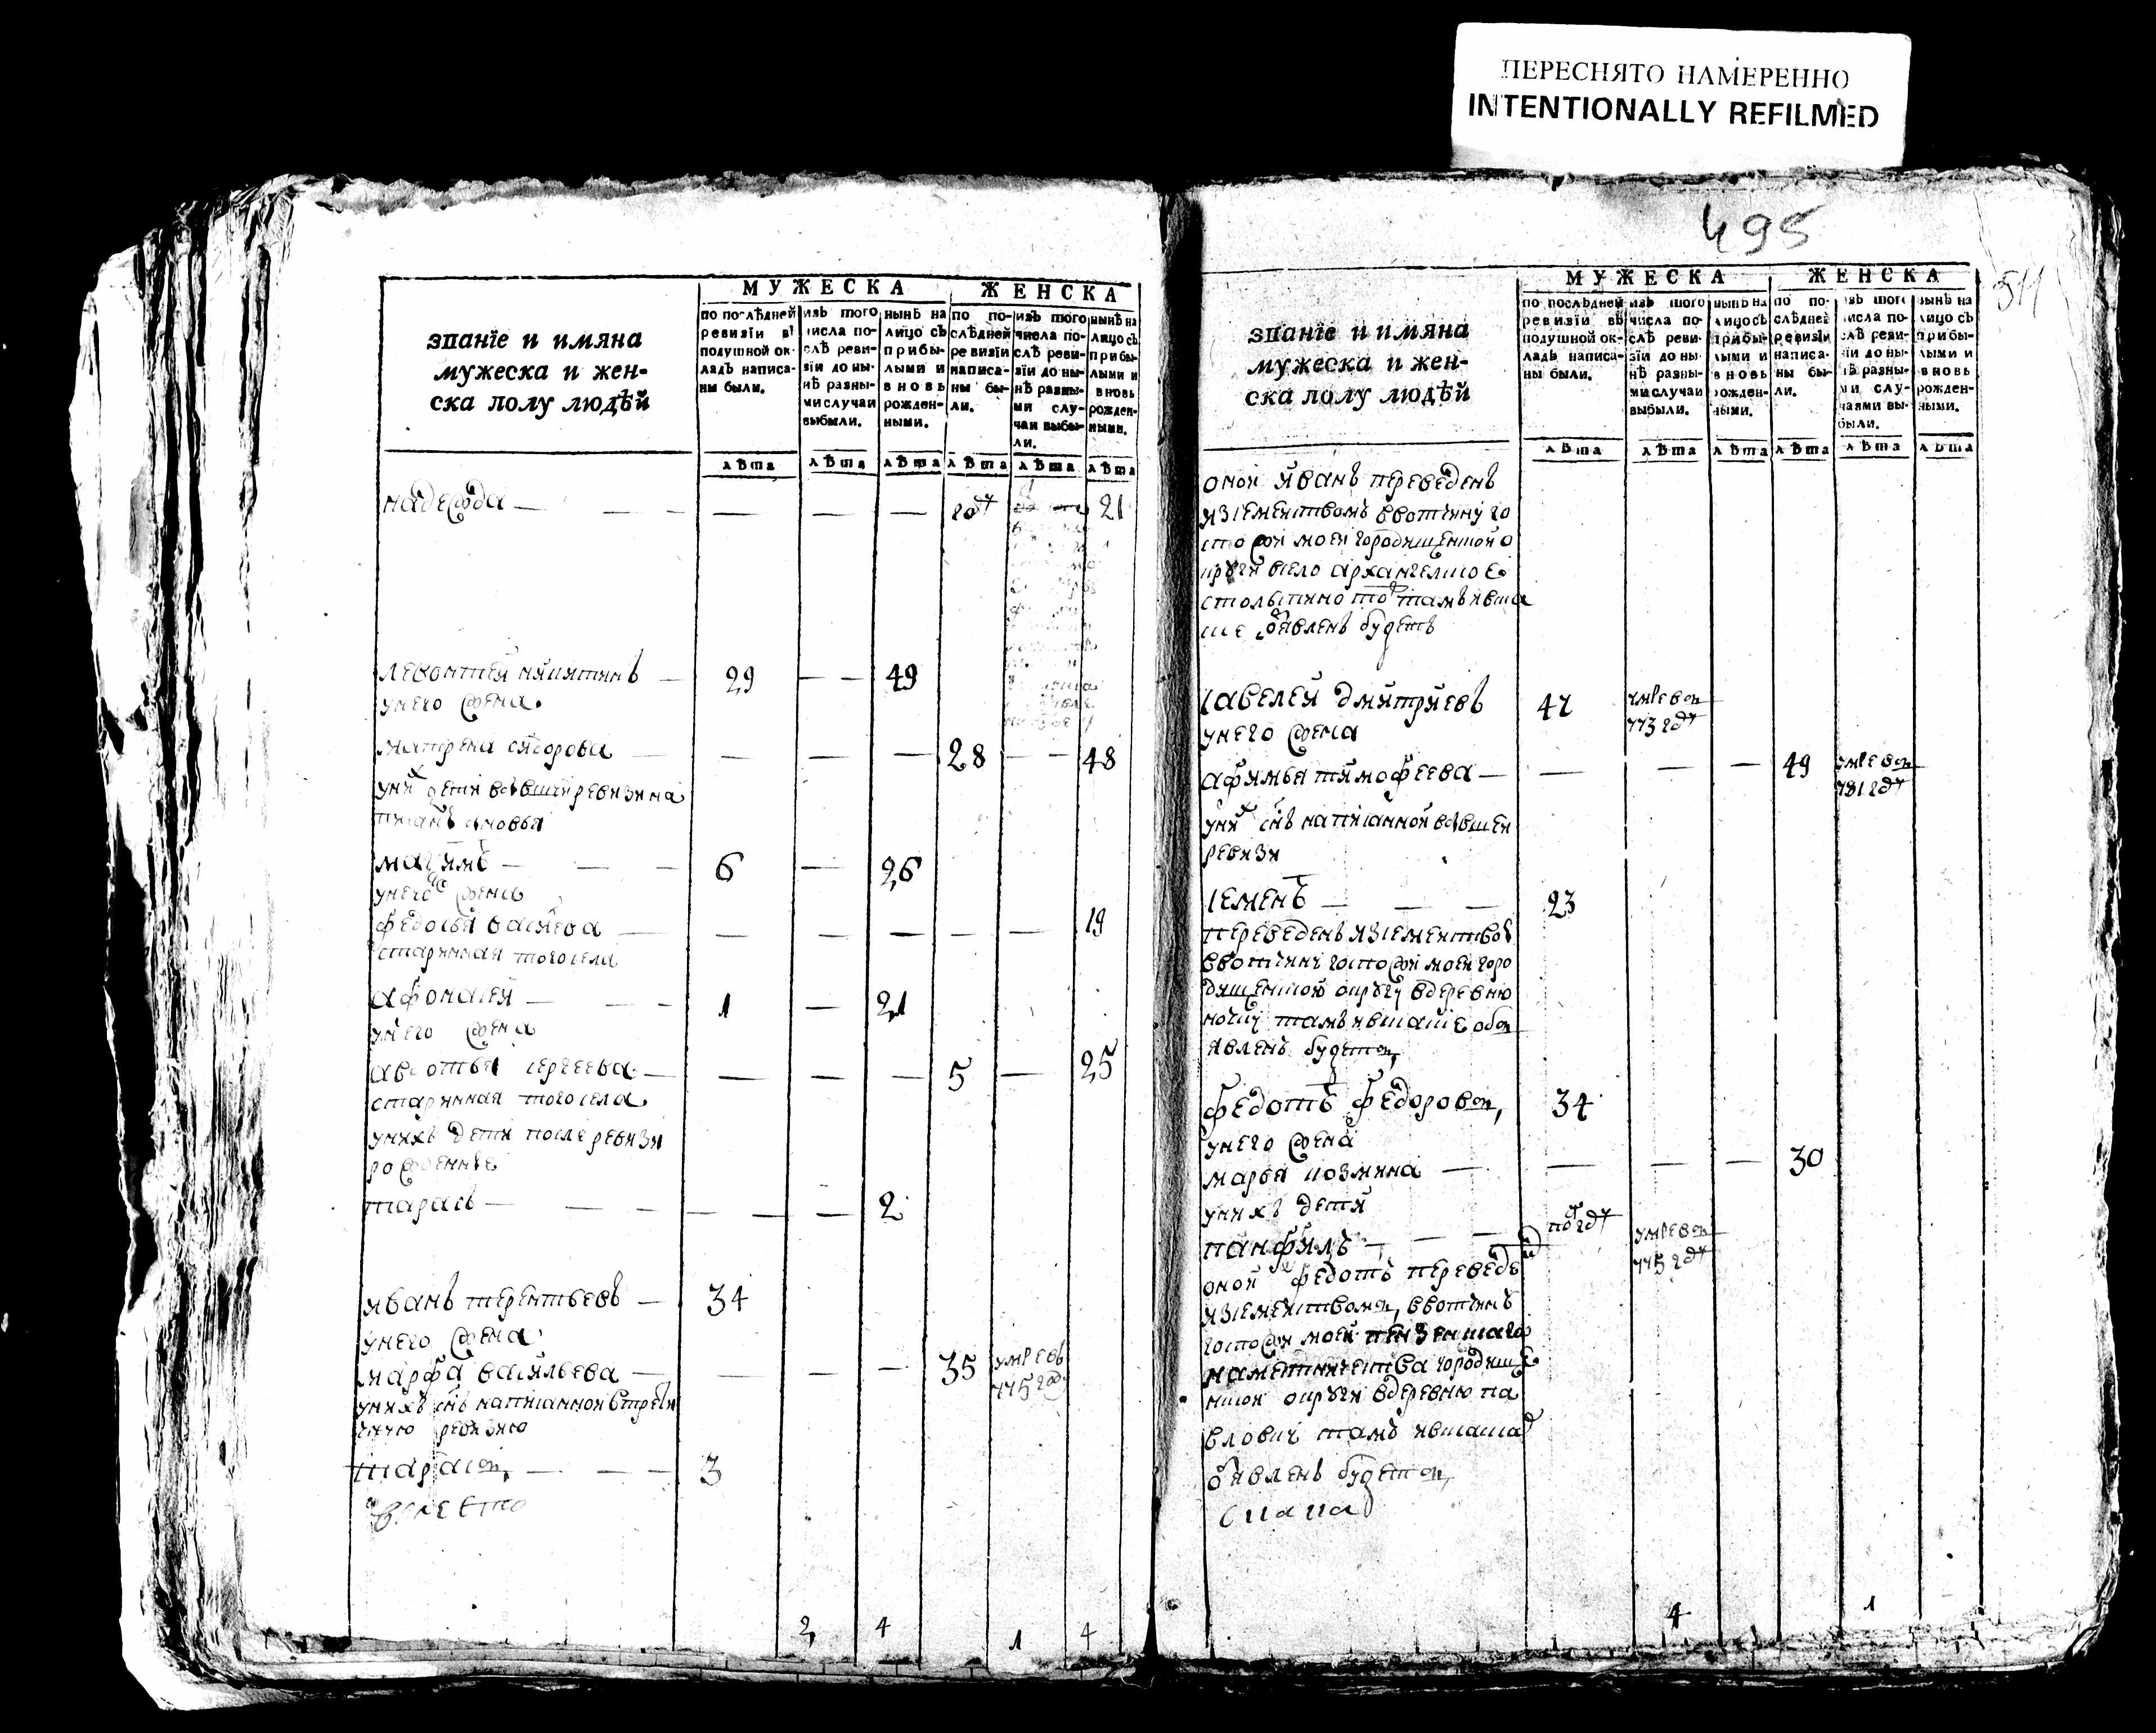 ПЕРЕСНЯТО НАМЕРЕННО
INTENTIONALLY REFILMED
495
511
званїе и имяна
мужеска и жен-
ска полу людѣй
МУЖЕСКА
ЖЕНСКА
по послѣдней
ревизїи въ
подушной ок-
ладъ написа-
ны были.
изъ того
числа по-
слѣ реви-
зїи до ны-
нѣ разны-
ми случаи
выбыли.
нынѣ на
лицо съ
прибы-
лыми и
вновь
рожден-
ными.
по по-
слѣдней
ревизїи
написа-
ны бы-
ли.
изъ того
числа по-
слѣ реви-
зїи до ны-
нѣ разны-
ми слу-
чаи выбы-
ли.
нынѣ на
лицо съ
прибы-
лыми и
вновь
рожден-
ными.
лѣта лѣта лѣта лѣта лѣта лѣта
надежда — — — — — — 21
левонтей никитинъ — 29 — — 49
у него жена
матрена сидорова — — — — 28 — — 48
у них дети в бывшей ревизи на
писаны сновья
максимъ — — — 6 — 26
у него жена
федосья васи
ева — — — — — — 19
старинная того села
афонасей — — — 1 — 21
у него жена
авдотья сергеева — — — — 5 — 25
старинная того села
у нихъ дети после ревизи
рожденные
тарасъ — — — — — — 2
иванъ терентьевъ — 34
у него жена
марфа васильева — — — — 35 умре въ
775 году
у нихъ снъ написанной в трет
ью ревизию
тарасъ — — — 3
2 4 1 4
званїе и имяна
мужеска и жен-
ска полу людѣй
МУЖЕСКА
ЖЕНСКА
по послѣдней
ревизїи въ
подушной ок-
ладъ написа-
ны были.
изъ того
числа по-
слѣ реви-
зїи до ны-
нѣ разны-
ми случаи
выбыли.
нынѣ на
лицо съ
прибы-
лыми и
вновь
рожден-
ными.
по по-
слѣдней
ревизїи
написа-
ны бы-
ли.
изъ того
числа по-
слѣ реви-
зїи до ны-
нѣ разны-
ми слу-
чаями вы-
были.
нынѣ на
лицо съ
прибы-
лыми и
вновь
рожден-
ными.
лѣта лѣта лѣта лѣта лѣта лѣта
оной иванъ переведенъ
и семействомъ в вотчину го
спожи моей городищенской о
круги в село архангелское
столыпино то тамъ и в ска
ске обявленъ будетъ
савелей дмитриевъ 47 умре въ
773 году
у него жена
афимья тимофеева — — — — 49 умре въ
781 году
у них снъ написанной в бывшей
ревизи
семенъ — — — 23
переведенъ и семействомъ
в вотчину госпожи моей горо
дищенской округи в деревню
тамъ и в скаске объ
явленъ будетъ
федотъ федоровъ 34
у него жена
марья козмина — — — — 30
у нихъ дети
панфилъ — — — полгоду умре въ
775 году
оной федотъ переведе
и семействомъ, в вотчину
госпожи моей пензенскаго
наместничества городище
нской округи в деревню па
вловку тамъ и в скаска
обявленъ будетъ
4 1